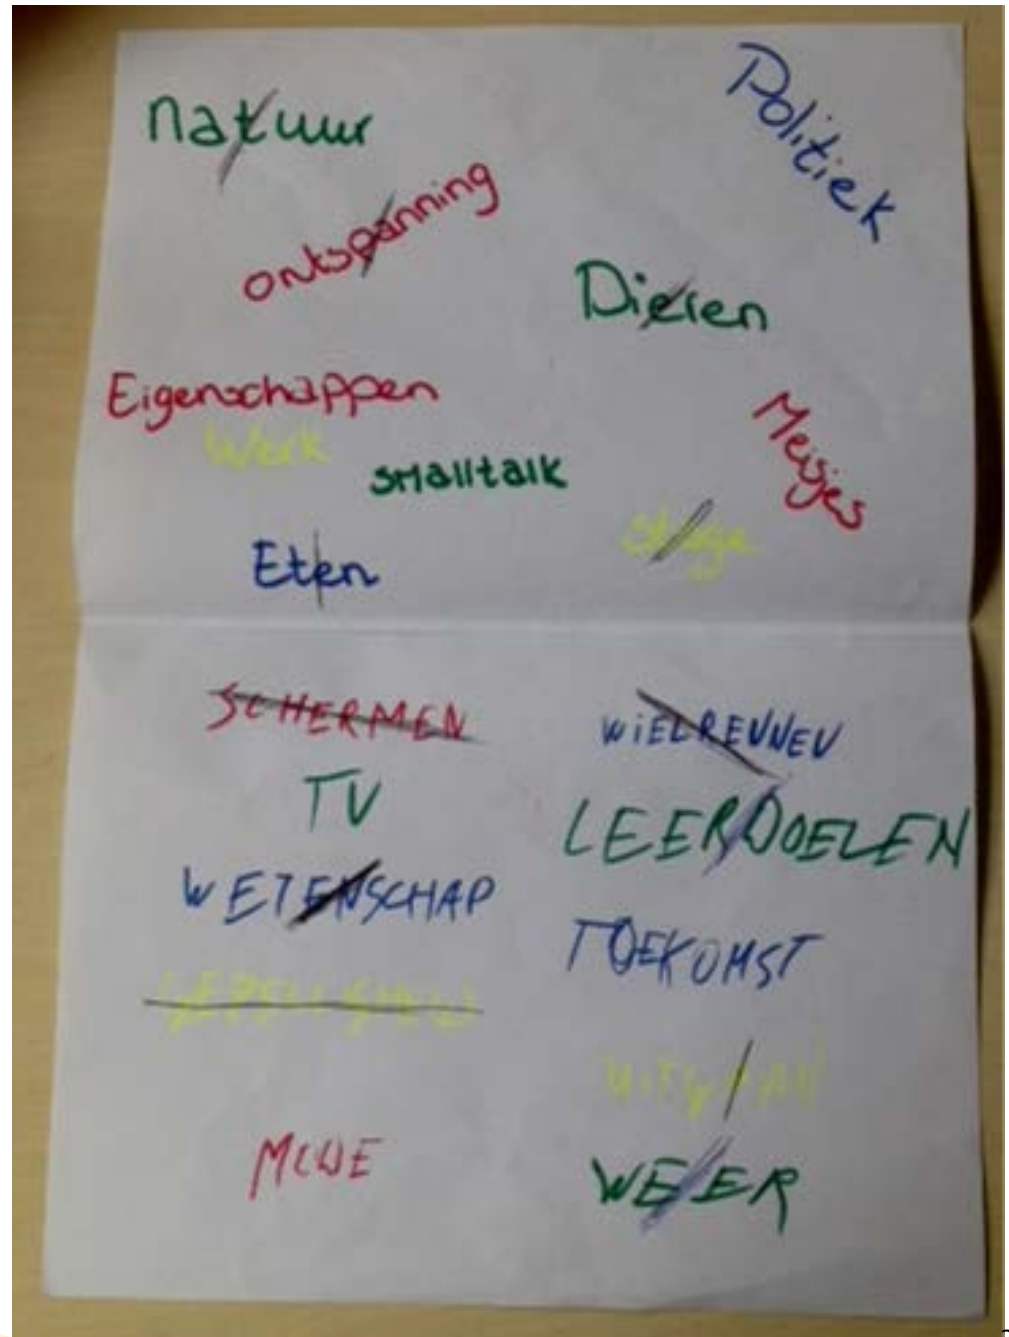 Natuur
Politiek
ontspanning
Dieren
Eigenschappen
Meisjes
Werk
smalltalk
stage
Eten
SCHERMEN
WIELRENNEN
TV
LEERDOELEN
WETENSCHAP
TOEKOMST
UITGAAN
WEER